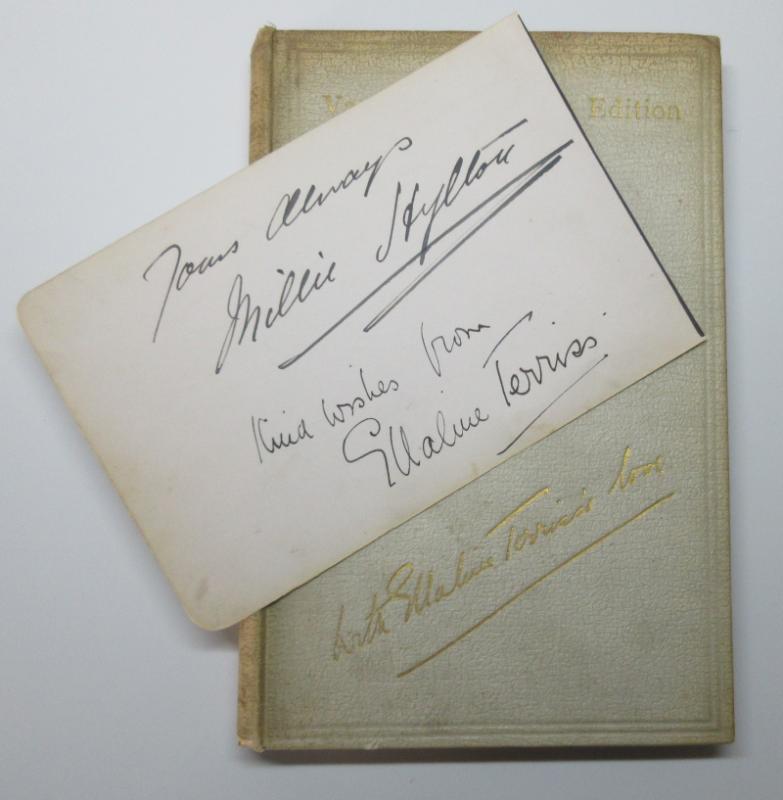 Edition
Yours Always
Millie Hylton
Kind wishes from
Ellaline Terriss.
With Ellaline Terriss's love